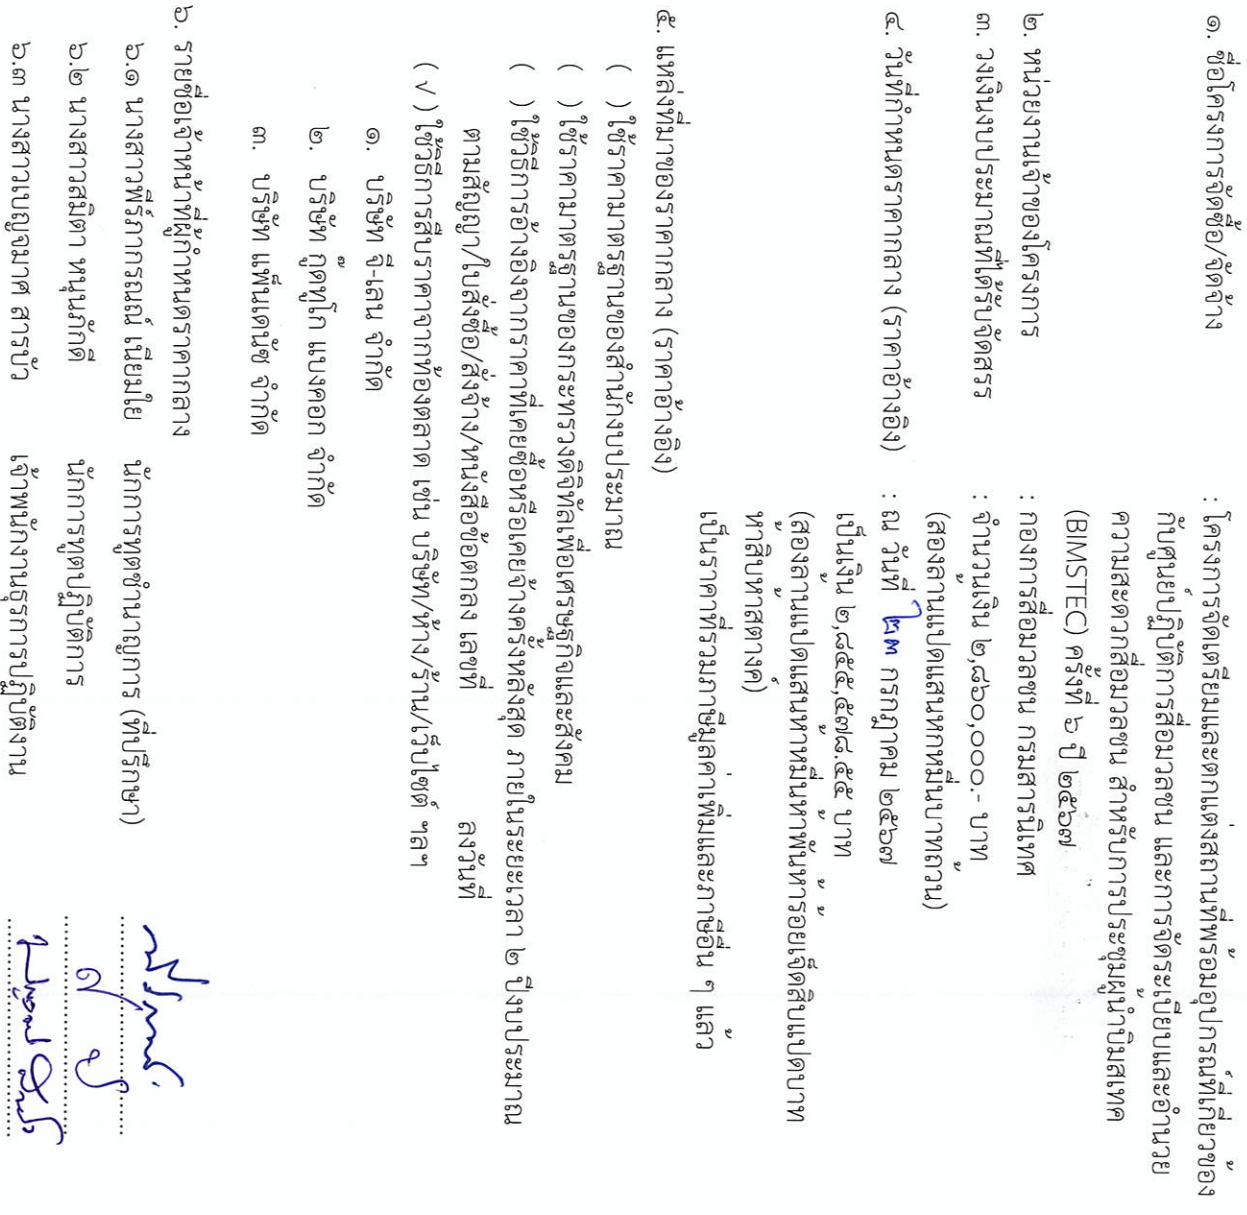 ๑. ชื่อโครงการจัดซื้อ/จัดจ้าง : โครงการจัดเตรียมและตกแต่งสถานที่พร้อมอุปกรณ์ที่เกี่ยวข้อง
กับศูนย์ปฏิบัติการสื่อมวลชน และการจัดระเบียบและอำนวย
ความสะดวกสื่อมวลชน สำหรับการประชุมผู้นำบิมสเทค
(BIMSTEC) ครั้งที่ ๖ ปี ๒๕๖๗
๒. หน่วยงานเจ้าของโครงการ : กองการสื่อมวลชน กรมสารนิเทศ
๓. วงเงินงบประมาณที่ได้รับจัดสรร : จำนวนเงิน ๒,๘๖๐,๐๐๐.- บาท
(สองล้านแปดแสนหกหมื่นบาทถ้วน)
๔. วันที่กำหนดราคากลาง (ราคาอ้างอิง) : ณ วันที่ ๒๓ กรกฎาคม ๒๕๖๗
เป็นเงิน ๒,๘๕๕,๕๗๘.๕๕ บาท
(สองล้านแปดแสนห้าหมื่นห้าพันห้าร้อยเจ็ดสิบแปดบาท
ห้าสิบห้าสตางค์)
เป็นราคาที่รวมภาษีมูลค่าเพิ่มและภาษีอื่น ๆ แล้ว
๕. แหล่งที่มาของราคากลาง (ราคาอ้างอิง)
( ) ใช้ราคามาตรฐานของสำนักงบประมาณ
( ) ใช้ราคามาตรฐานของกระทรวงดิจิทัลเพื่อเศรษฐกิจและสังคม
( ) ใช้วิธีการอ้างอิงจากราคาที่เคยซื้อหรือเคยจ้างครั้งหลังสุด ภายในระยะเวลา ๒ ปีงบประมาณ
ตามสัญญา/ใบสั่งซื้อ/สั่งจ้าง/หนังสือข้อตกลง เลขที่ ลงวันที่
( √ ) ใช้วิธีการสืบราคาจากท้องตลาด เช่น บริษัท/ห้าง/ร้าน/เว็บไซต์ ฯลฯ
๑. บริษัท จี-เลน จำกัด
๒. บริษัท กู๊ดทูโก แบงคอก จำกัด
๓. บริษัท แฟ็นเดนัซ จำกัด
๖. รายชื่อเจ้าหน้าที่ผู้กำหนดราคากลาง
๖.๑ นางสาวพีร์ภากรณณ์ เนียมใย นักการทูตชำนาญการ (ที่ปรึกษา)
๖.๒ นางสาวสมิตา หนุนภักดี นักการทูตปฏิบัติการ
๖.๓ นางสาวเบญจมาศ สารบัว เจ้าพนักงานธุรการปฏิบัติงาน